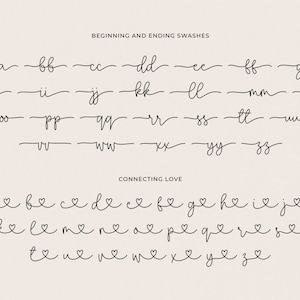 BEGINNING AND ENDING SWASHES
a bb cc dd ee ff g
ii jj kk ll mm
oo pp qq rr ss tt uu
vv ww xx yy zz
CONNECTING LOVE
b c d e f g h i j
k l m n o p q r s
t u v w x y z